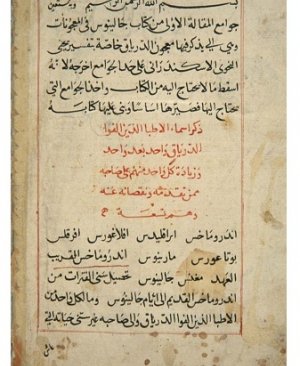 بسم الله الرحمن الرحيم وبه نستعين
جوامع المقالة الاولى من كتاب جالينوس في المعجونات
وهي التي يذكر فيها معجون الدرياق خاصة تفسير يحيى
النحوي الاسكندراني على حد جوامع اخرجه لانه
اسقط ما لا يحتاج اليه من الكتاب واخذ الجوامع التي
يحتاج اليها فصيرها اساسا وبنى عليها كتابه
ذكر اسماء الاطبا الذين الفوا
الدرياق واحد بعد واحد
وزيادة كل واحد منهم على صاحبه
ممن تقدمه ونقصانه عنه
وهم تسعة
اندروماخس ابراقليدس افلاغورس افرقلس
يوثاغورس مارينوس اندروماخس القريب
العهد مغنس جالينوس تحصيل سني الفترات من
اندروماخس القديم الى ايام جالينوس وما لكل واحد من
الاطبا الذين الفوا الدرياق والى صاحبه من سني حياته الى